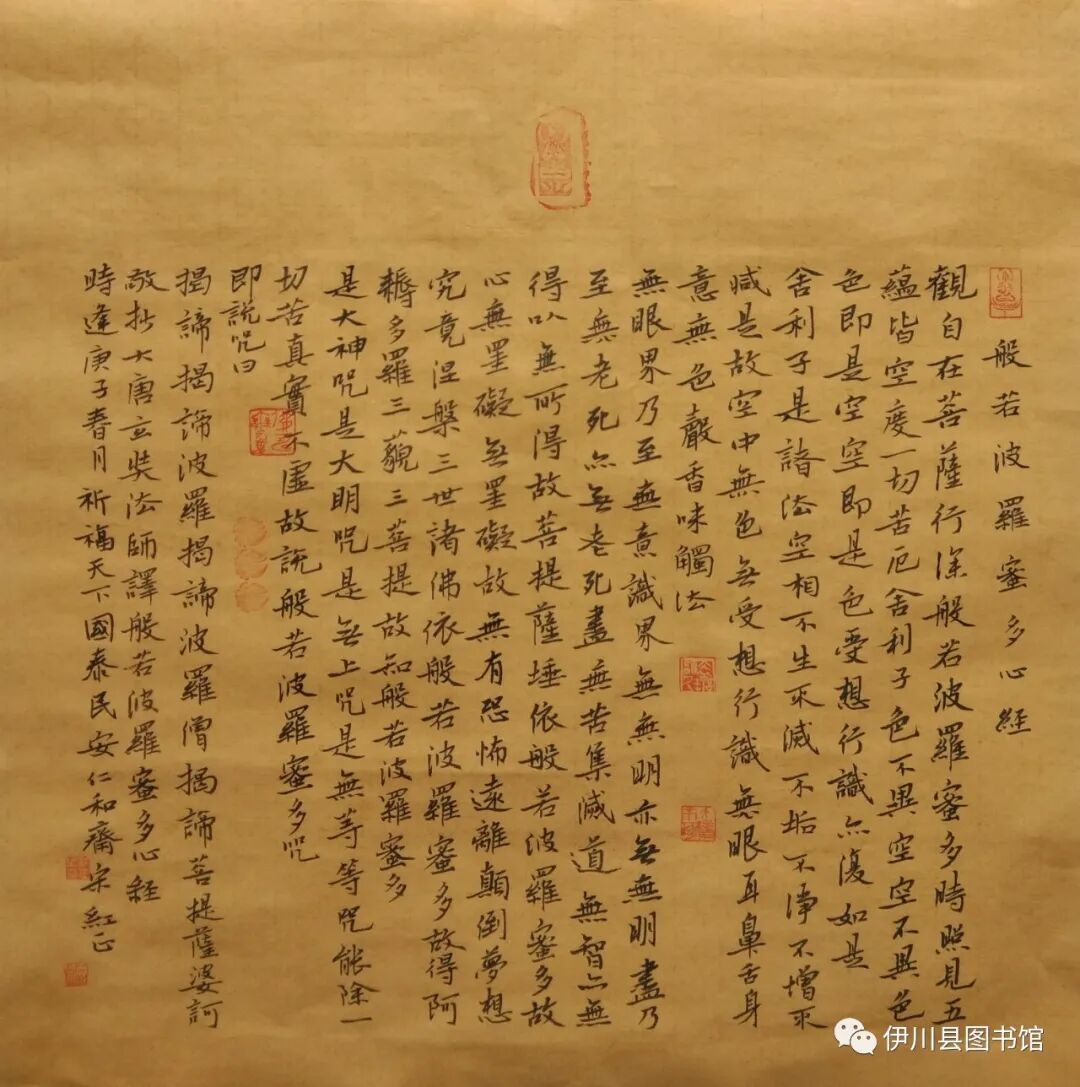 般若波羅蜜多心経
觀自在菩薩行深般若波羅蜜多時照見五
蘊皆空度一切苦厄舍利子色不異空空不異色
色即是空空即是色受想行識亦復如是
舍利子是諸法空相不生不滅不垢不淨不增不
減是故空中無色無受想行識無眼耳鼻舌身
意無色聲香味觸法
無眼界乃至無意識界無無明亦無無明盡乃
至無老死亦無老死盡無苦集滅道無智亦無
得以無所得故菩提薩埵依般若波羅蜜多故
心無罣礙無罣礙故無有恐怖遠離顛倒夢想
究竟涅槃三世諸佛依般若波羅蜜多故得阿
耨多羅三藐三菩提故知般若波羅蜜多
是大神咒是大明咒是無上咒是無等等咒能除一
切苦真實不虛故説般若波羅蜜多咒
即説咒曰
揭諦揭諦波羅揭諦波羅僧揭諦菩提薩婆訶
敬抄大唐玄奘法師譯般若波羅蜜多心経
時逢庚子春月祈福天下國泰民安仁和齋宋紅正
伊川县图书馆